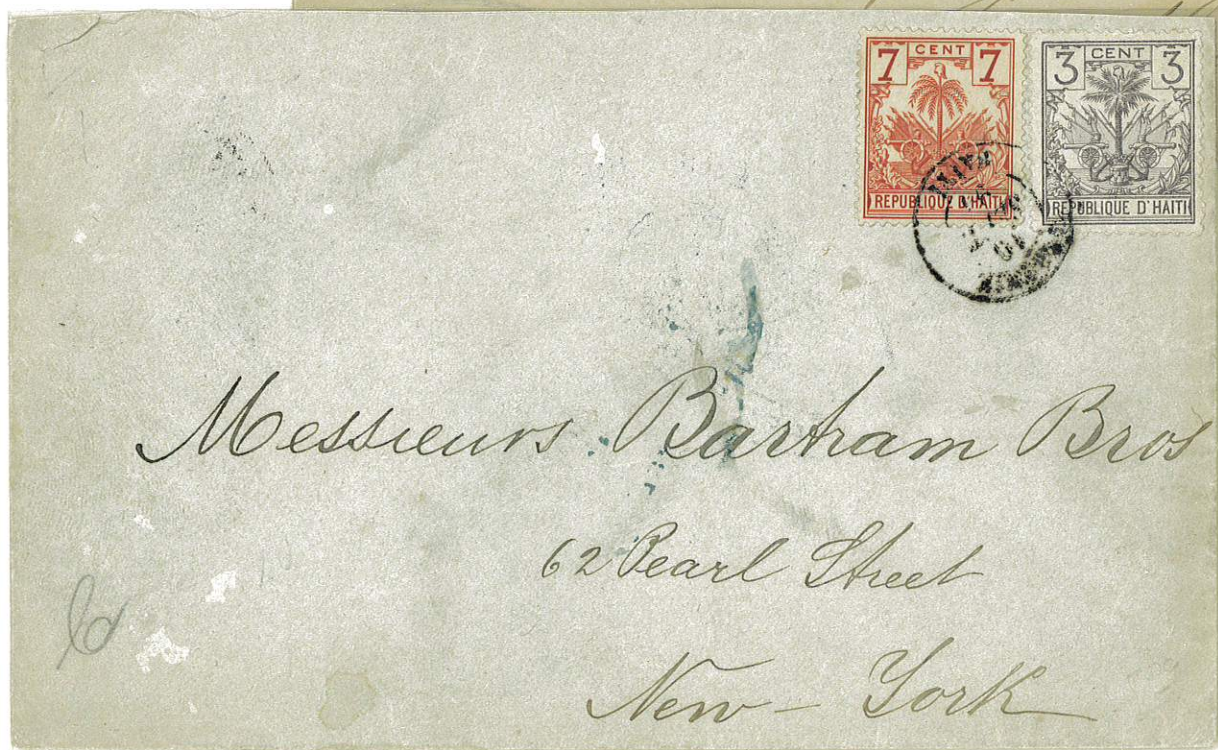 7 CENT 7
REPUBLIQUE D'HAITI
3 CENT 3
REPUBLIQUE D'HAITI
HAITI
Messieurs Bartram Bros
62 Pearl Street
New-York